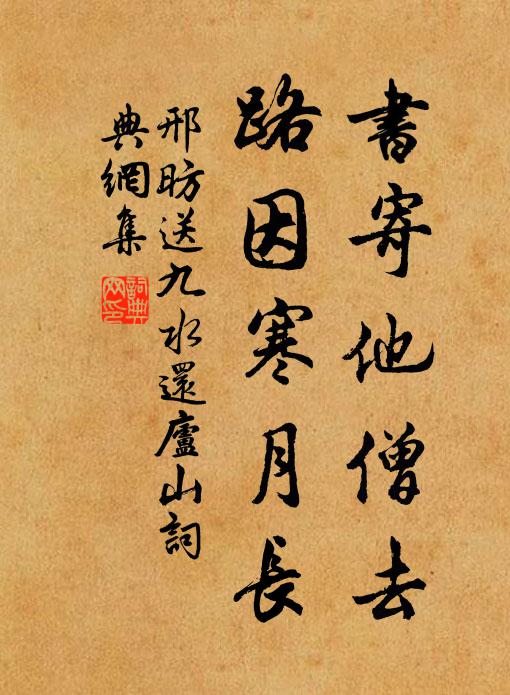 書寄他僧去
路因寒月長
邢昉送九水還廬山詞
典網集
詞典網印